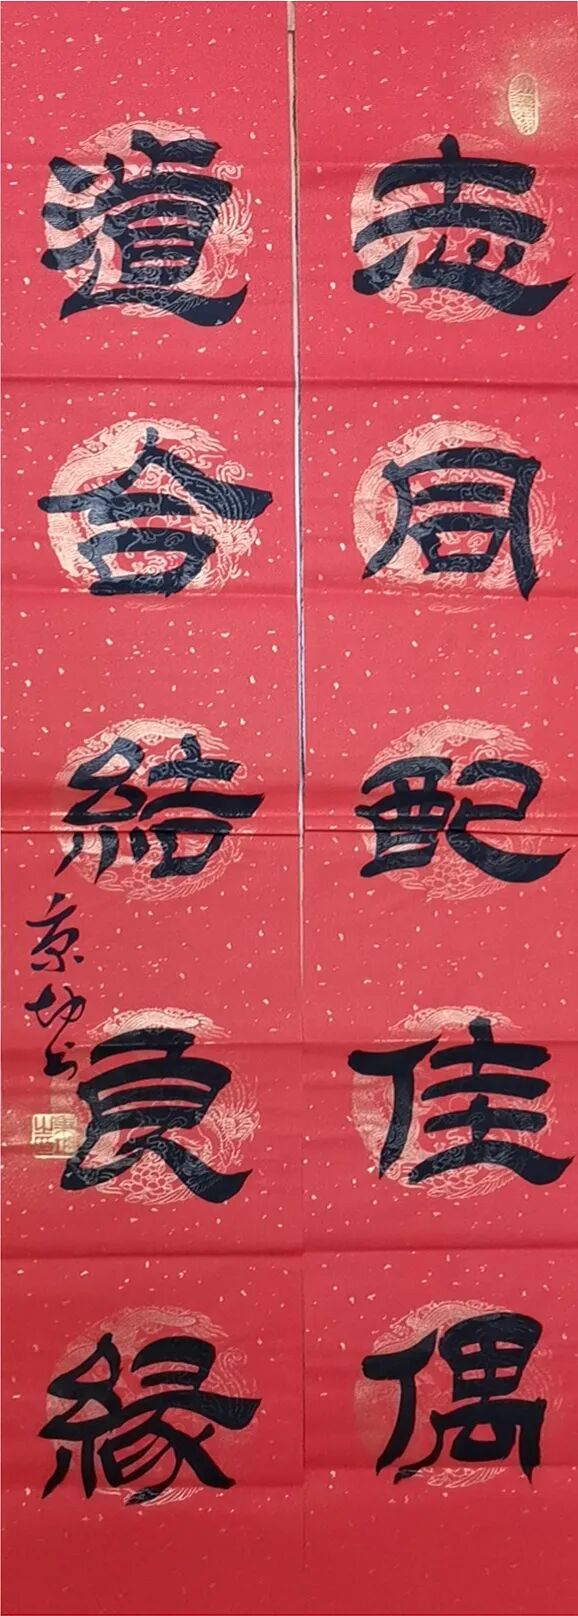 志同配佳偶
道合結良緣
京坊书